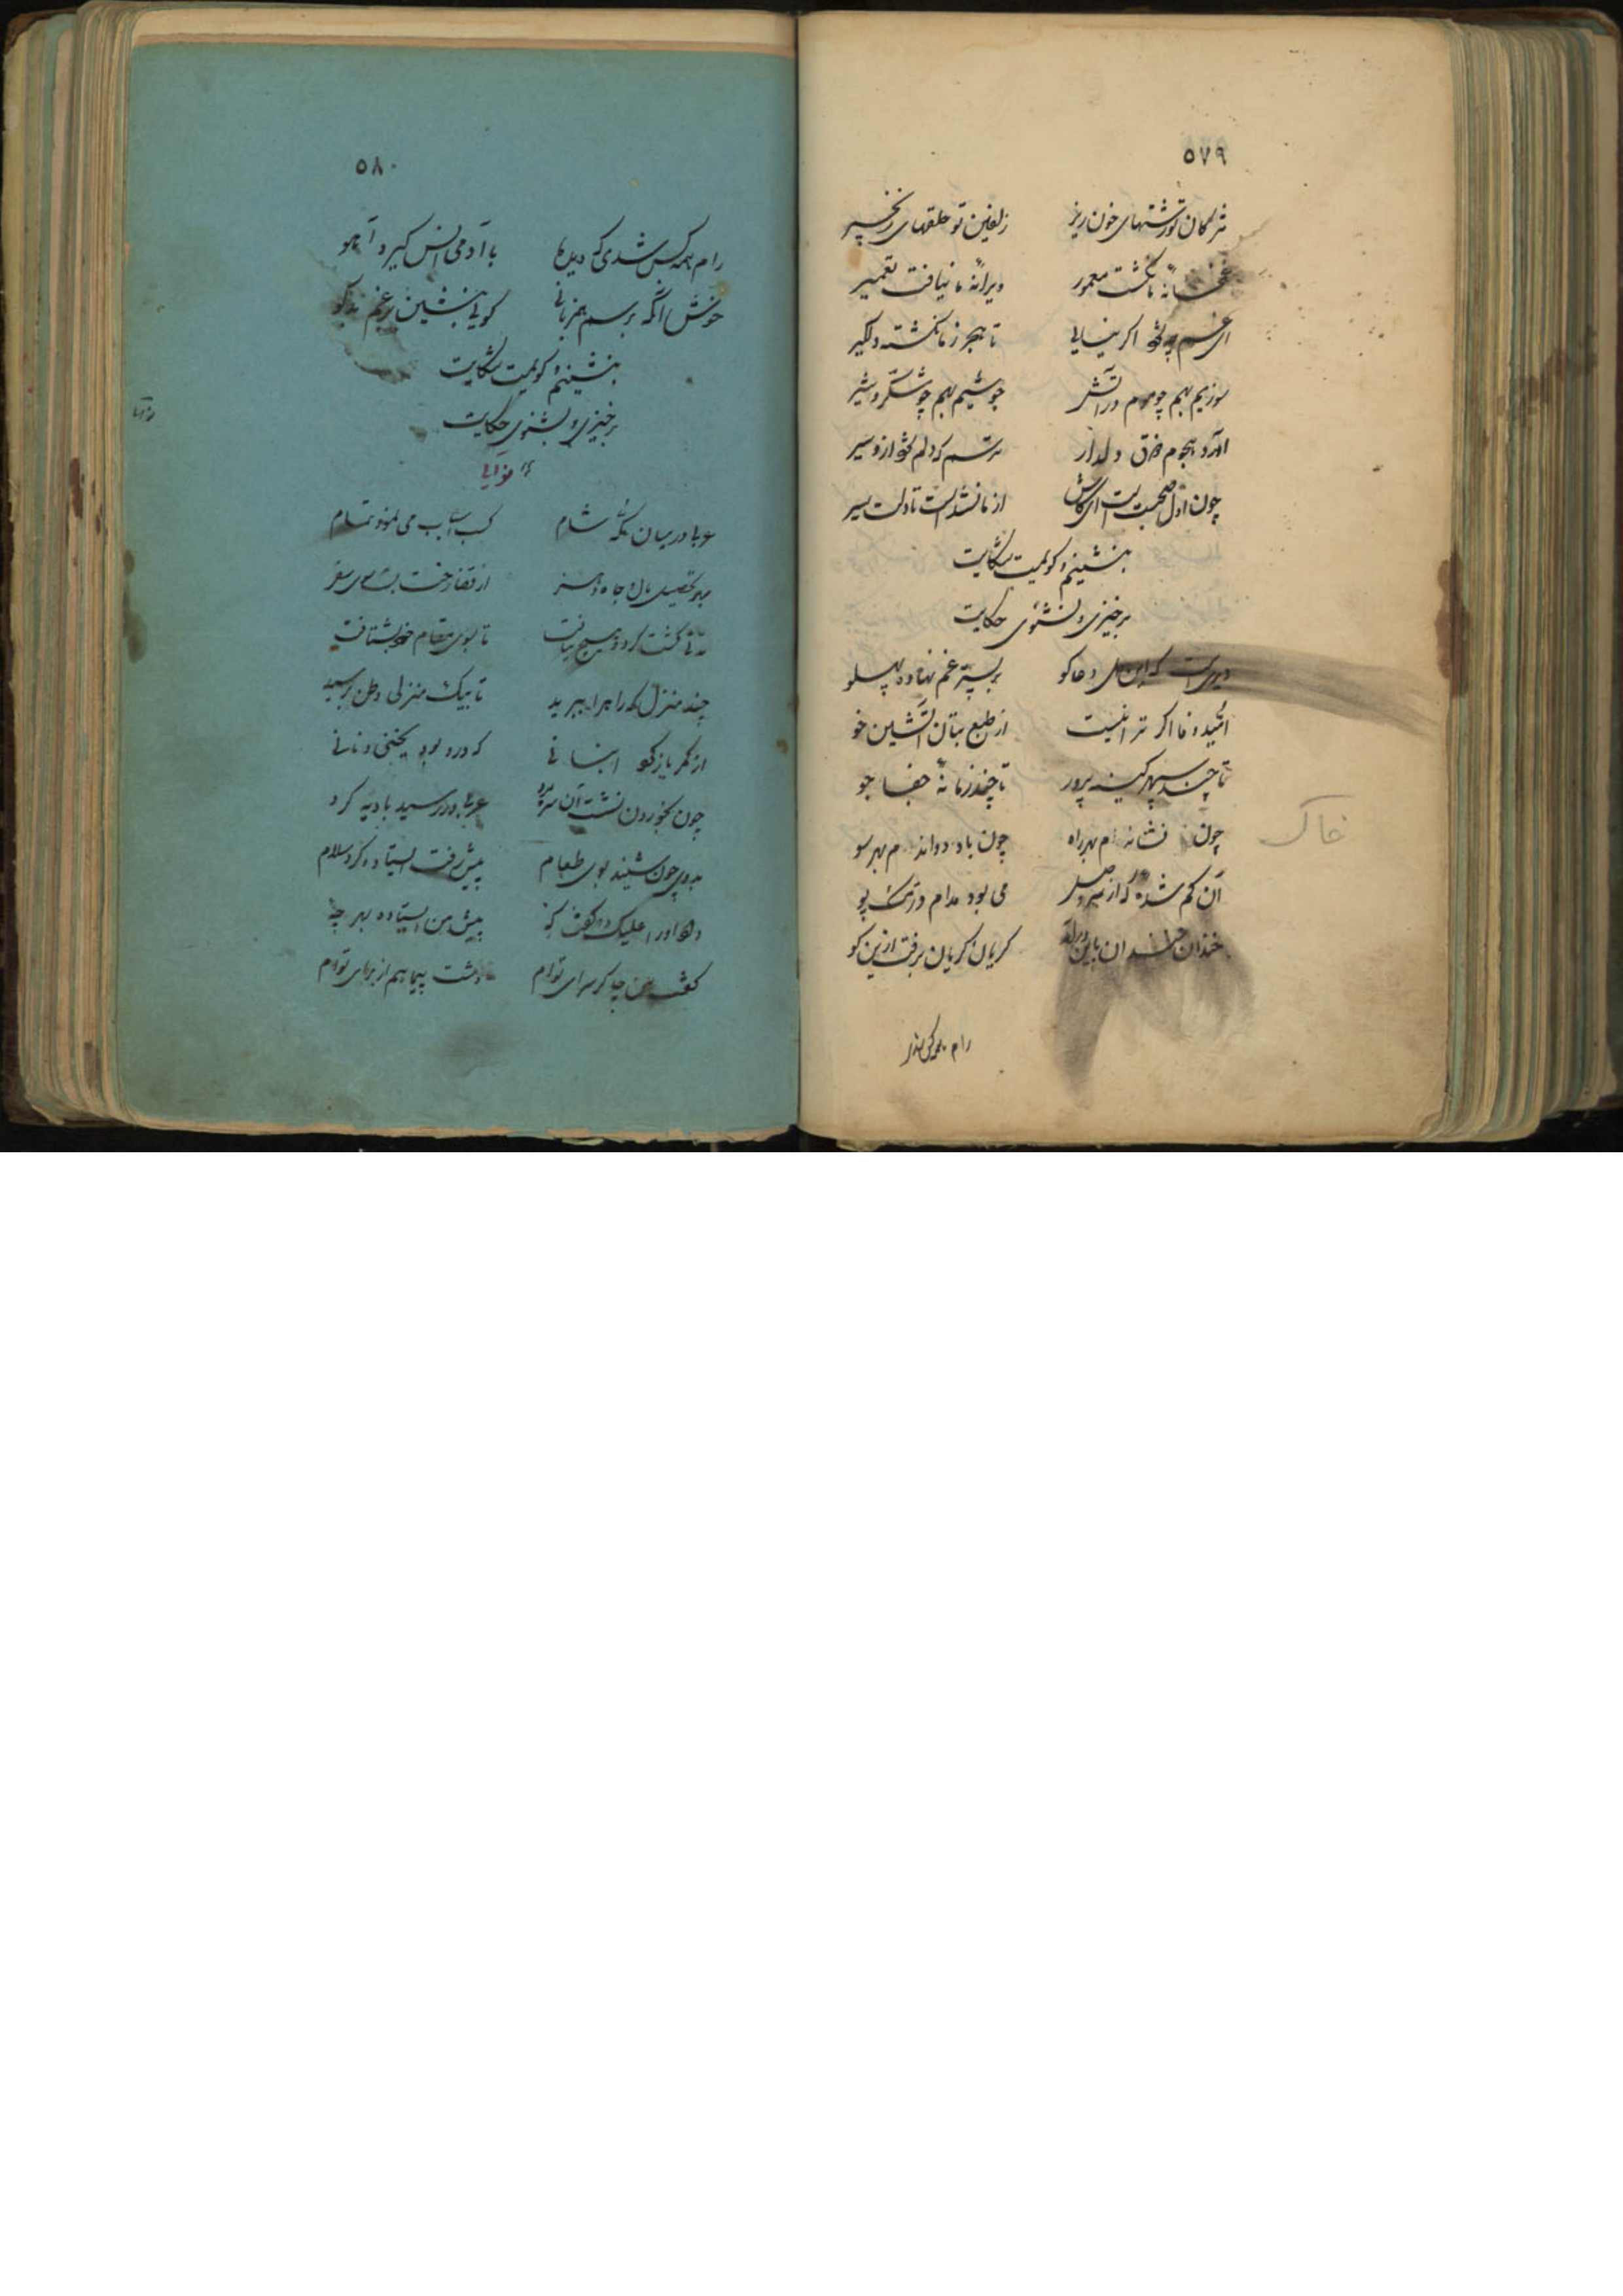 ٥٧٩
مژگان تو دشنهای خون ریز زلفین تو حلقهای زنجیر
غمخانهٔ ما نگشت معمور ویرانهٔ ما نیافت تعمیر
ای غم چه شود اگر بیایی تا هجر ز ما نگشته دلگیر
سوزیم بهم چو موم در آتش جوشیم بهم چو شکر و شیر
آورد هجوم فرق دلدار ترسم که دلم شود ازو سیر
چون اول صحبت است ای کاش از ما نشد است تا دلت سیر
بنشینم و گویمت شکایت
برخیزی و نشنوی حکایت
دیریست که این دعاگو بر بستر غم نهاده پهلو
امید وفا اگر ترا نیست از طبع بتان آتشین خو
تا چند سپهر کینه پرور تا چند زمانهٔ جفا جو
چون نشاندم بهر راه چون باد دواندم بهر سو
خاک
آن گم شده که از می بود مدام در تک پو
خندان خندان باین گریان گریان برفت ازین کو
رام همه کس شدی
٥٨٠
رام همه کس شدی که دیدها با آدمی انس گیرد آهو
خوش آنکه برسم همزبانی گویی بنشین برغم بدگو
بنشینم و گویمت شکایت
برخیزی و نشنوی حکایت
عربی در میان مکه و شام کسب آداب می نمود تمام
بهر تحصیل مال و جاه و هنر از قضا رخت بست سوی سفر
مدتی گشت کرد و هیچ نیافت تا بسوی مقام خود بشتافت
چند منزل که راه را ببرید تا بیک منزلی وطن برسید
از کمر باز کرد انبانی که درو بود یخنی و نانی
چون بخوردن نشست آن سره مرد عربی در رسید بادیه گرد
بدوی چون شنید بوی طعام پیش رفت ایستاد و کرد سلام
داد او را علیک و گفت کهٔ پیش من ایستاده بهر چهٔ
گفت من چاکر سرای توام دشت پیما هم از برای توام